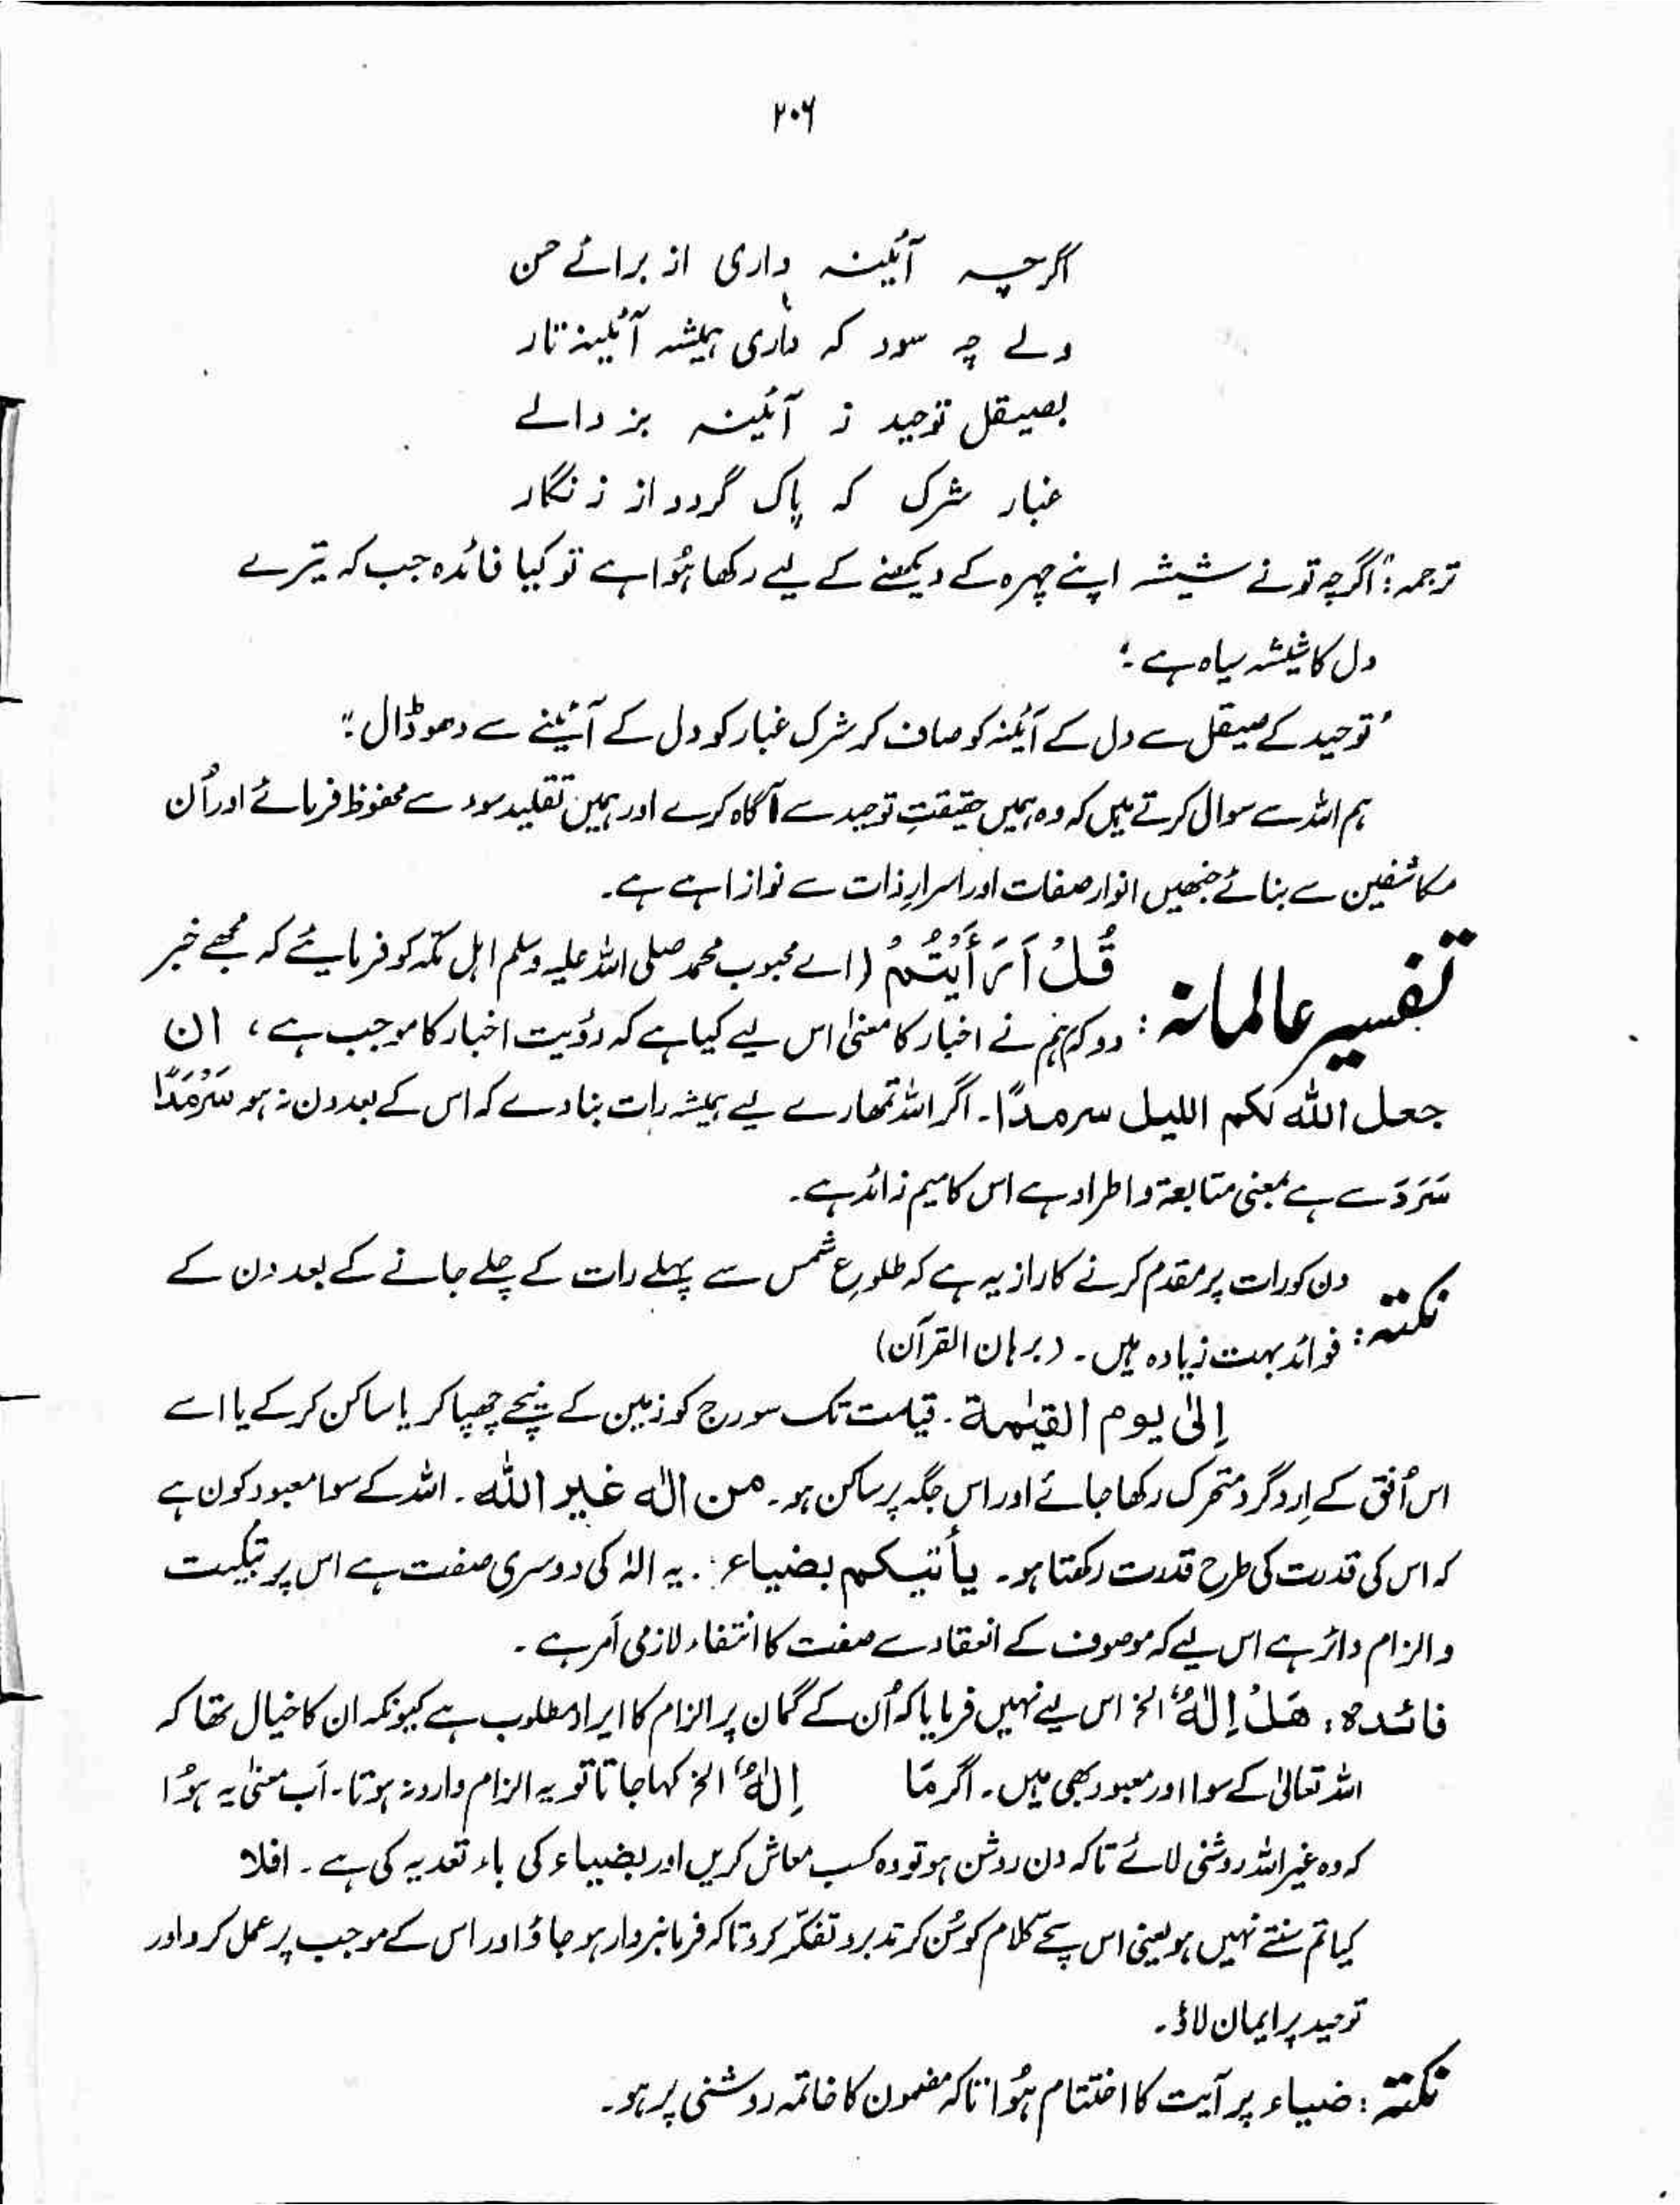 ۲۰۶
اگرچہ آئینہ داری از برائے حسن
ولے چہ سود کہ داری ہمیشہ آئینہ تار
بصیقل توحید ز آئینہ بزدالے
غبار شرک کہ پاک گردد از زنگار
ترجمہ: "اگرچہ تو نے شیشہ اپنے چہرہ کے دیکھنے کے لیے رکھا ہُوا ہے تو کیا فائدہ جب کہ تیرے
دل کا شیشہ سیاہ ہے؛
'توحید کے صیقل سے دل کے آئینہ کو صاف کر شرک غبار کو دل کے آئینے سے دھو ڈال:"
ہم اللہ سے سوال کرتے ہیں کہ وہ ہمیں حقیقتِ توحید سے آگاہ کرے اور ہمیں تقلید سوء سے محفوظ فرمائے اور اُن
مکاشفین سے بنائے جنھیں انوار صفات اور اسرارِ ذات سے نوازا ہے ہے۔
تفسیر عالمانہ: قُلْ اَرَأَيْتُمْ (اے محبوب محمد صلی اللہ علیہ وسلم اہل مکّہ کو فرمایئے کہ مجھے خبر
دو کہ ہم نے اخبار کا معنیٰ اس لیے کیا ہے کہ رؤیت اخبار کا موجب ہے، ان
جعل اللہ لکم الیل سرمدًا۔ اگر اللہ تمھارے لیے ہمیشہ رات بنا دے کہ اس کے بعد دن نہ ہو سَرْمَدًا
سَرَدَ سے ہے بمعنی متابعۃ و اطراد ہے اس کا میم زائد ہے۔
نکتہ: دن کو رات پر مقدم کرنے کا راز یہ ہے کہ طلوعِ شمس سے پہلے رات کے چلے جانے کے بعد دن کے
فوائد بہت زیادہ ہیں۔ (برہان القرآن)
اِلیٰ یوم القیٰمۃ۔ قیامت تک سورج کو زمین کے نیچے چھپا کر یا ساکن کر کے یا اسے
اس اُفق کے اِرد گرد متحرک رکھا جائے اور اس جگہ پر ساکن ہو۔ من الٰہ غیر اللہ۔ اللہ کے سوا معبود کون ہے
کہ اس کی قدرت کی طرح قدرت رکھتا ہو۔ یأتیکم بضیاء:۔ یہ الٰہ کی دوسری صفت ہے اس پر تبکیت
و الزام دائر ہے اس لیے کہ موصوف کے انعقاد سے صفت کا انتفاء لازمی اَمر ہے۔
فائدہ: ھَلْ اِلٰہٌ الخ اس لیے نہیں فرمایا کہ اُن کے گمان پر الزام کا ایراد مطلوب ہے کیونکہ ان کا خیال تھا کہ
اللہ تعالیٰ کے سوا اور معبود بھی ہیں۔ اگر مَا اِلٰہٌ الخ کہا جاتا تو یہ الزام وارد نہ ہوتا۔ اَب معنیٰ یہ ہُوا
کہ وہ غیر اللہ روشنی لائے تاکہ دن روشن ہو تو وہ کسب معاش کریں اور بضیاء کی باء تعدیہ کی ہے۔ افلا
کیا تم سُنتے نہیں ہو یعنی اس سچّے کلام کو سُن کر تدبر و تفکّر کرو تاکہ فرمانبردار ہو جاؤ اور اس کے موجب پر عمل کرو اور
توحید پر ایمان لاؤ۔
نکتہ: ضیاء پر آیت کا اختتام ہُوا تاکہ مضمون کا خاتمہ روشنی پر ہو۔